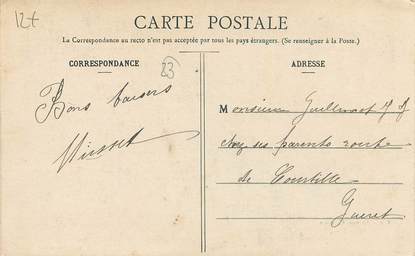 12+
CARTE POSTALE
La Correspondance au recto n'est pas acceptée par tous les pays étrangers. (Se renseigner à la Poste.)
CORRESPONDANCE
23
ADRESSE
Bons baisers
Monsieur
chez ses parents route
de Courtille
Gueret